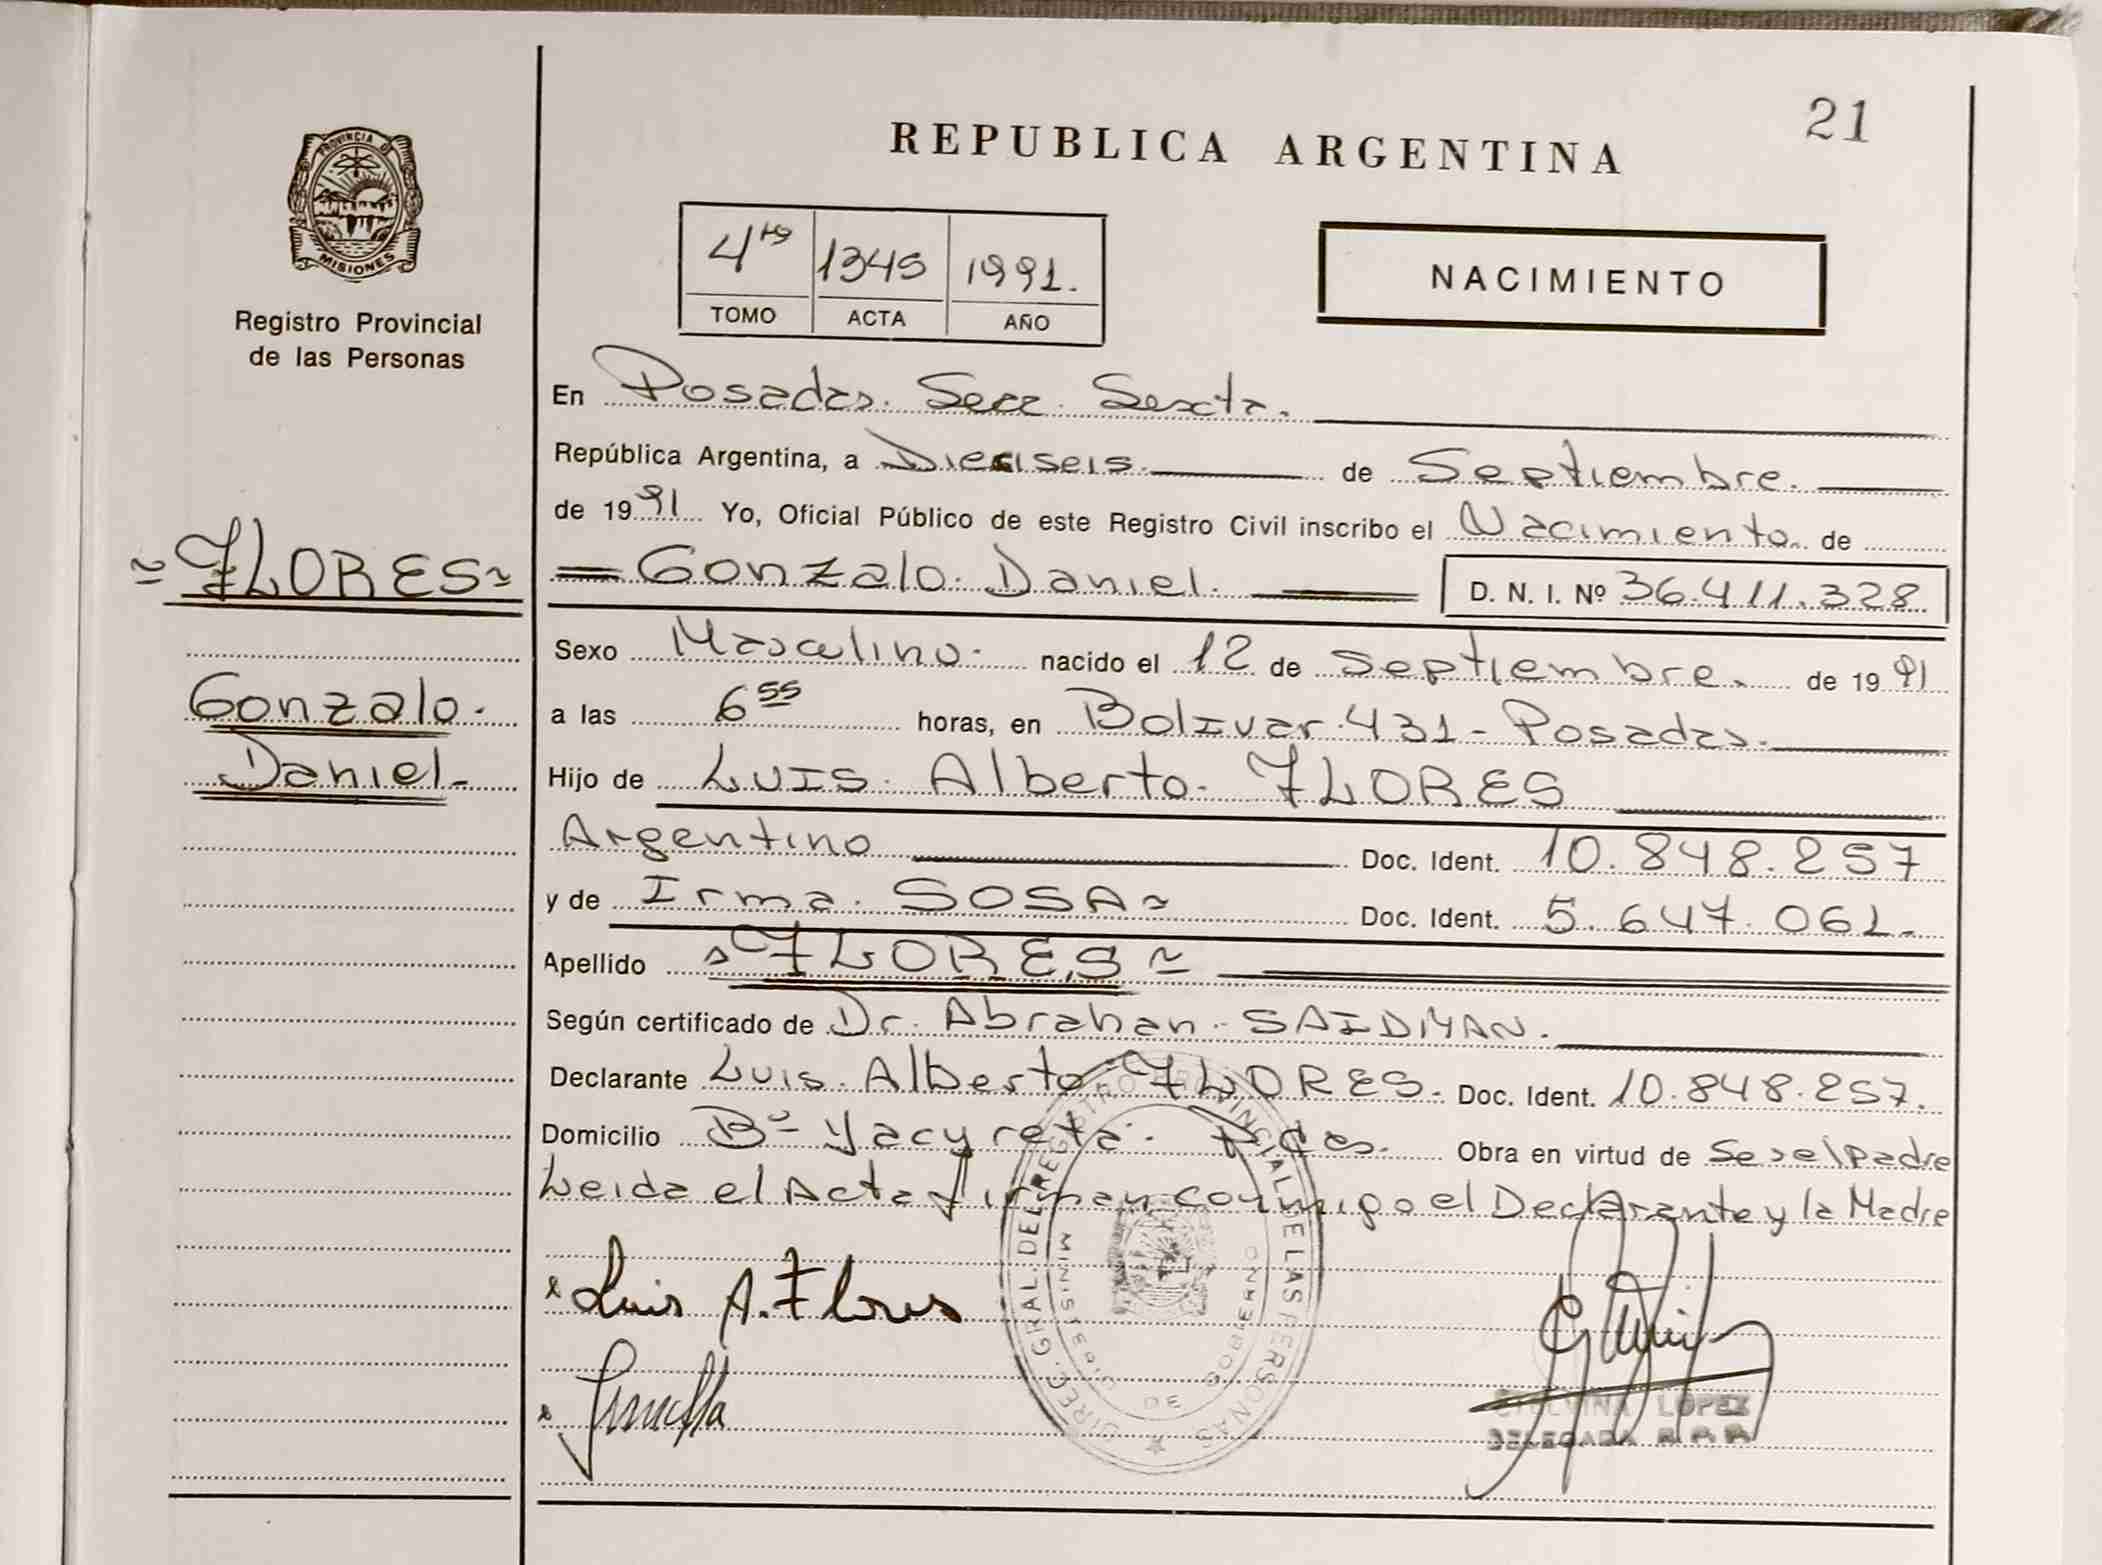 21
REPUBLICA ARGENTINA
PROVINCIA DE
MISIONES
Registro Provincial
de las Personas
4to 1345 1991.
TOMO ACTA AÑO
NACIMIENTO
En Posadas. Secc. Sexta.
República Argentina, a Dieciseis de Septiembre.
de 1991 Yo, Oficial Público de este Registro Civil inscribo el Nacimiento. de
FLORES
Gonzalo. Daniel. D. N. I. Nº 36.411.328
Sexo Masculino. nacido el 12 de Septiembre. de 1991
Gonzalo.
a las 6 55 horas, en Bolivar 431 - Posadas.
Daniel.
Hijo de Luis. Alberto. FLORES
Argentino Doc. Ident. 10.848.257
y de Irma. SOSA Doc. Ident. 5.647.061.
Apellido FLORES
Según certificado de Dr. Abrahan. SAIDMAN.
Declarante Luis. Alberto FLORES. Doc. Ident. 10.848.257.
Domicilio Bº Yacyreta. Pdas. Obra en virtud de Ser el Padre
Leida el Acta firman conmigo el Declarante y la Madre
Luis A. Flores
DIREC. GRAL. DEL REGISTRO PROVINCIAL DE LAS PERSONAS
MINISTERIO DE GOBIERNO
LOPEZ
DELEGADA